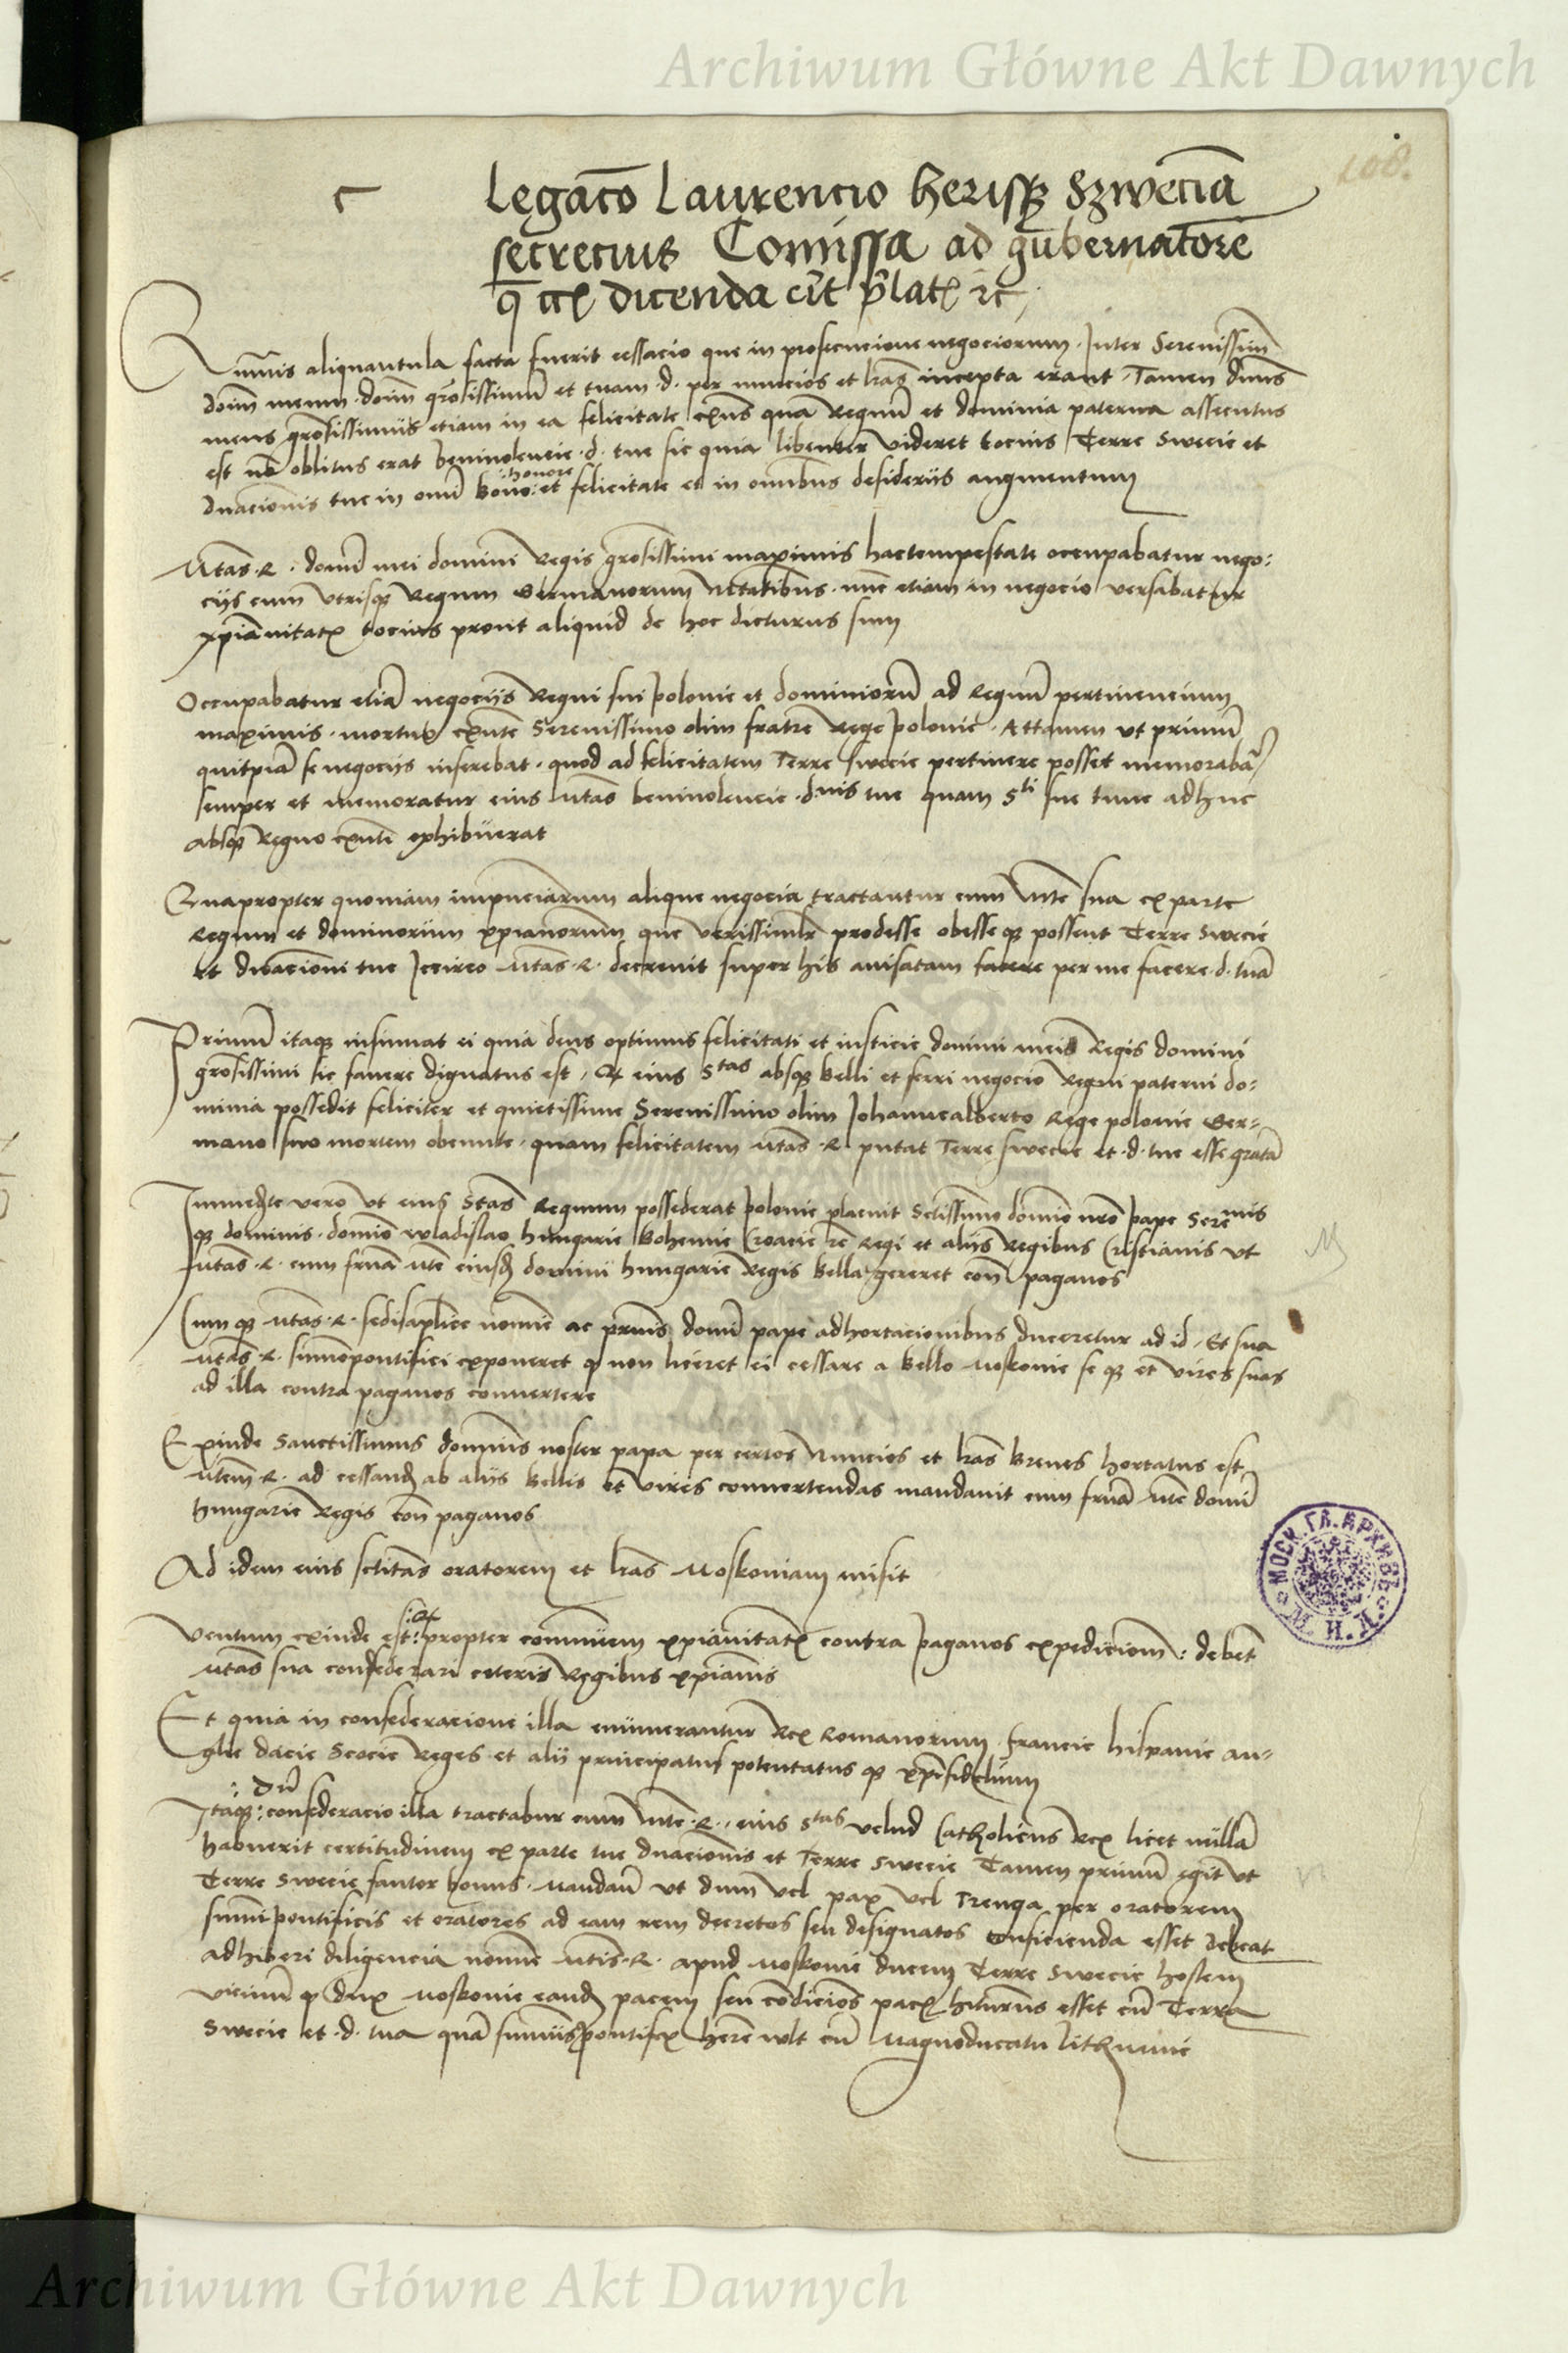 Archiwum Główne Akt Dawnych
108.
Legacō Laurencio herisqꝫ Szweciā
secrecius Comissa ad gubernatorē
dicenda erit plat
Quāuis aliquantula facta fuerit cessacio que in prosecucione negociorum · Inter Serenissimū
doīm meum · doīm grōsissimū et tuam · d · per nuncios et lrās incepta erant · Tamen dūus
meus grōsissimus etiam in ea felicitate exn̄s quā Regnū et dominia paterna assecutus
est nō oblitus erat beniuolencie · d · tue sic quia libenter videret tocius Terre Swecie et
dnacionis tue in omī bono : honore : et felicitate et in omībus desiderijs augmentum
Mtās · R · domī mei domini Regis grōsissimi maximis hac tempestate occupabatur nego:
cijs cum vtrisqꝫ Regum Germanorum Mtatibus · nūc etiam in negocio versabatur
xpiānitatꝭ tocius prout aliquid de hoc dicturus sum
Occupabatur etiā negocijs Regni sui Polonie et dominiorū ad Regnū pertinencium
maximis · mortuo exn̄te Serenissimo olim fratre Rege Polonie · Attamen vt primū
quitpiā se negocijs inserebat · quod ad felicitatem Terre Swecie pertinere posset memorabāꝭ
semper et memoratur eius Mtās beniuolencie · d · nis tue quam Sti sue tunc adhuc
absqꝫ Regno exn̄ti exhibuerat
Quapropter quoniam impnciarum alique negocia tractantur cum Mte sua ex parte
Regum et dominorum xpianorum que verissimilr prodesse obesseqꝫ possent Terre Swecie
et dnacioni tue Iccirco Mtās · R · decreuit super his auisatam facere per me facere · d · tuā
Primū itaqꝫ insinuat ei quia deus optimus felicitati et iusticie domini mei Regis domini
grōsissimi sic fauere dignatus est · Qꝫ eius Stas absqꝫ belli et ferri negocio Regni paterni do:
minia possedit feliciter et quietissime Serenissimo olim Iohannealberto Rege polonie Ger=
mano suo mortem obeunte · quam felicitatem Mtās · R · putat Terre Swecie et · d · tue esse gratā
Immedte vero vt eius Stās Regnum possederat Polonie placuit Sctissimo domīo nrō Pape Serenis
qꝫ dominis · domīo wladislao hungarie Bohemie Croacie rc̄ Regi et alijs Regibus Cristianis vt
Mtās · R · cum frnā Mte eiusdꝫ domini hungarie Regis bella gereret con̄ paganos
Cumqꝫ Mtās · R · sedisaplice nomīe ac prmīs domī pape adhortacionibus duceretur ad id · Et sua
Mtās · R · summopontifici exponeret qꝫ non liceret ei cessare a bello Moskouie seqꝫ et vires suas
ad illa contra paganos conuertere
Exinde Sanctissimus dominus noster papa per certos Nuncios et lrās breues hortatus est
Mtem · R · ad cessandꝫ ab alijs bellis et vires conuertendas mandauit cum frnā Mte domī
hungarie Regis con̄ paganos
Ad idem eius sctitās oratorem et lrās Moskouiam misit
Ventum exinde est : qꝫ : propter comūem xpianitatꝭ contra Paganos expedicionē : debet
Mtās sua confederari ceteris Regibus xpianis
Et quia in confederacione illa enumerantur Rex Romanorum · Francie hispanie an=
glie dacie Scocie Reges et alij principatus potentatusqꝫ xpīfidelium
Itaqꝫ : dū : confederacio illa tractabur cum Mte · R · eius Stas velud Catholicus Rex licet nullā
habuerit certitudinem ex parte tue dnacionis et Terre Swecie Tamen primū egit vt
Terre Swecie fautor bonus · Mandauit vt dum vel pax vel Treuga per oratorem
sumīpontificis et oratores ad eam rem decretos seu designatos conficienda esset debeat
adhiberi diligencia nomīe Mtis · R · apud Moskouie ducem Terre Swecie hostem
vicinū qꝫ dux Moskouie eandꝫ pacem seu condicioēs pacꝭ hiturus esset cū Terra
Swecie et · d · tua quā sumuspontifex herē wlt cū Magnoducatu lithuanie
МОСК. ГЛ. АРХИВЪ М. И. Д.
Archiwum Główne Akt Dawnych